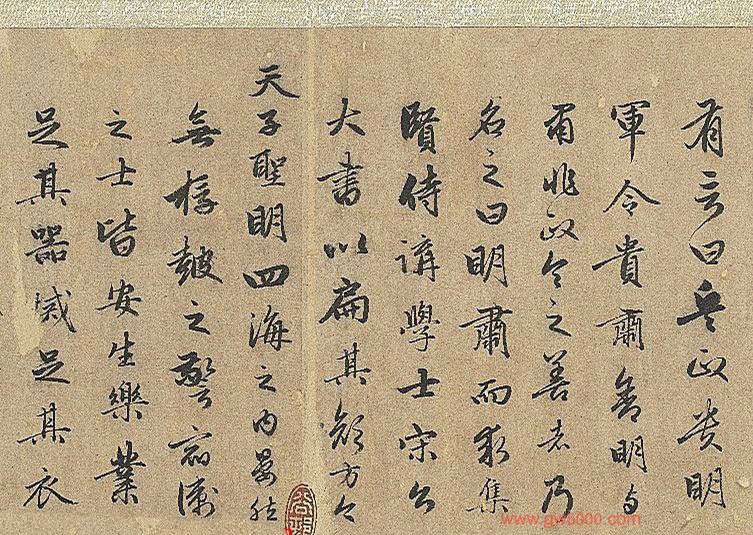 有言曰兵政貴明
軍令貴肅舍明与
肅非政令之善者乃
名之曰明肅而求集
賢侍講學士宋公
大書以扁其顏方今
天子聖明四海之内晏然
無桴鼓之警宿衛
之士皆安生樂業
足其器械足其衣
www.gw5000.com